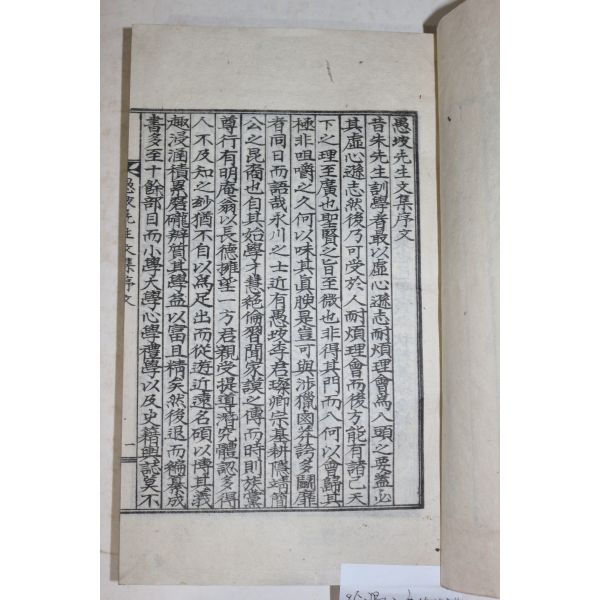 愚坡先生文集序文
昔朱先生訓學者最以虛心遜志耐煩理會爲入頭之要蓋必
其虛心遜志然後乃可受於人耐煩理會而後方能有諸己天
下之理至廣也聖賢之旨至微也非得其門而入何以會歸其
極非咀嚼之久何以味其眞腴是豈可與涉獵鹵莽誇多鬪靡
者同日而語哉永川之士近有愚坡李君璨卿宗基耕隱靖簡
公之昆裔也自其始學才慧絶倫習聞家說之傳而時則族黨
尊行有明庵翁以長德擁望一方君親受提導潛究體認多得
人不及知之妙猶不自以爲足出而從遊近遠名碩以博其義
趣浸涵積累磨礲辨質其學益以富且精矣然後退而編纂成
書多至十餘部曰而小學大學心學禮學以及史籍輿誌莫不
愚坡先生文集序文
一